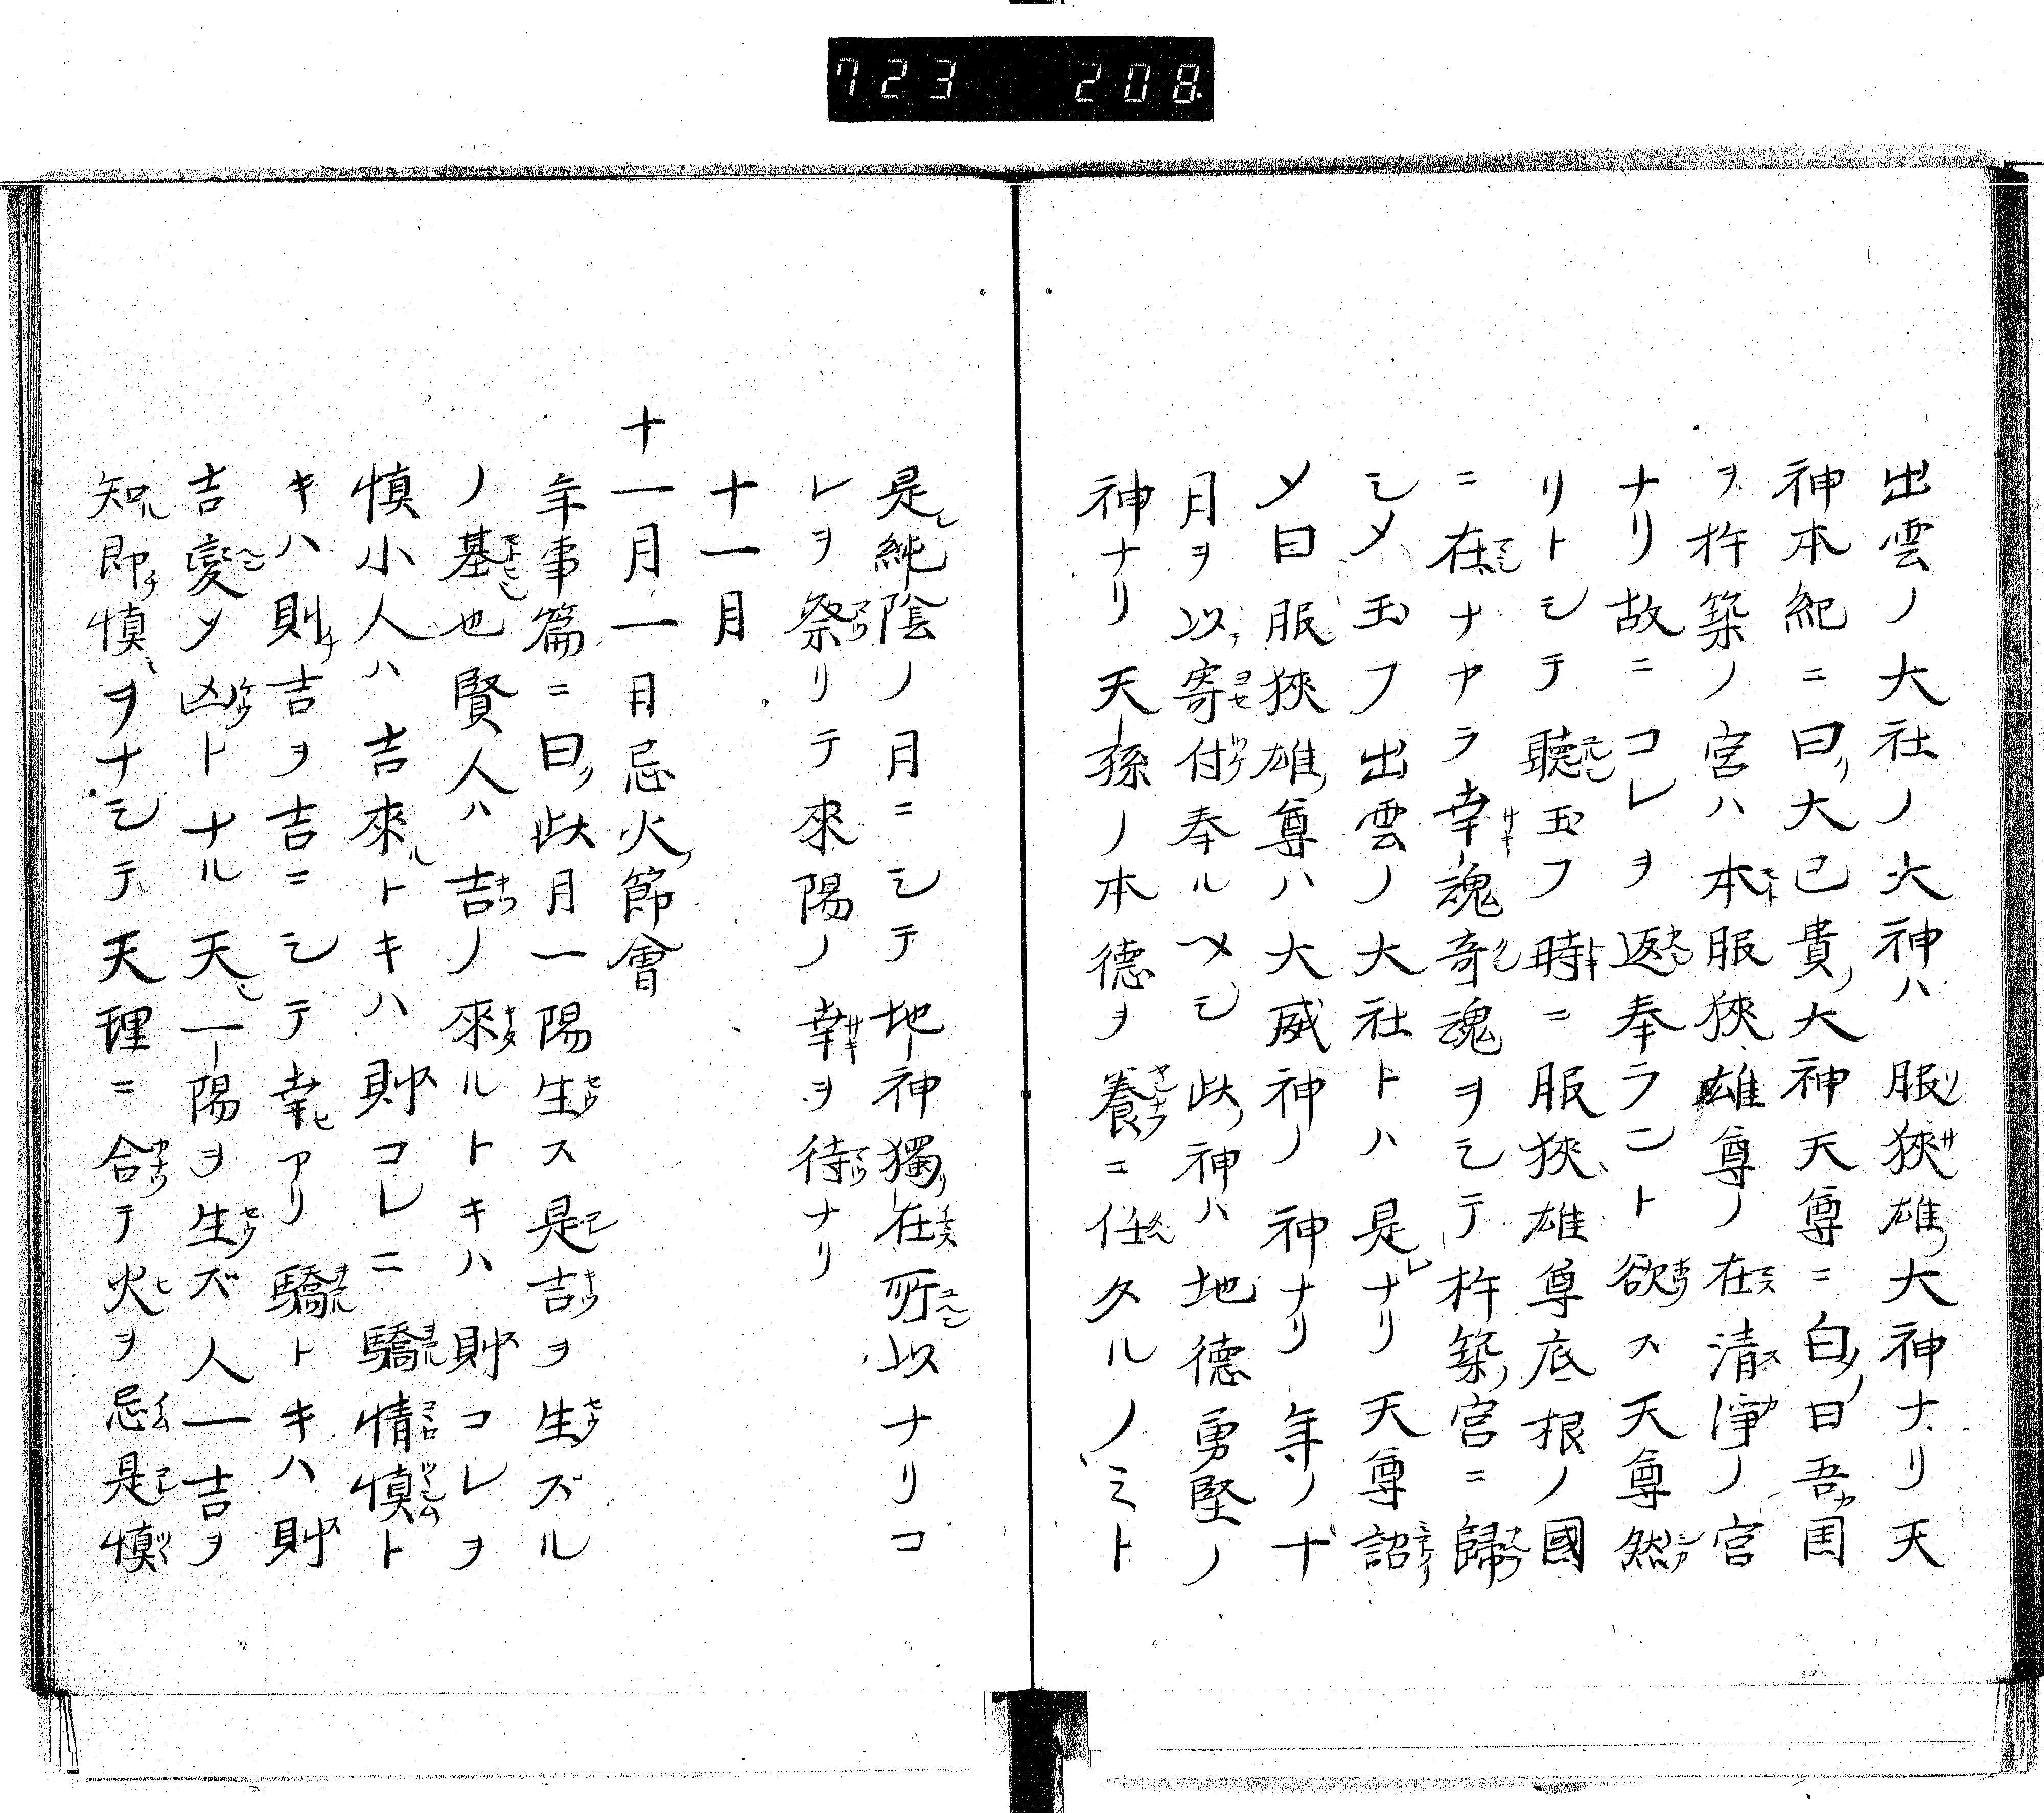 723 208.
出雲ノ大社ノ大神ハ服狹雄大神ナリ天
神本紀ニ曰大已貴大神天尊ニ白曰吾国
ヲ杵築ノ宮ハ本服狹雄尊ノ在清淨ノ宮
ナリ故ニコレヲ返奉ラント欲ス天尊然
リトシテ聽玉フ時ニ服狹雄尊底根ノ國
ニ在ナカラ幸魂奇魂ヲシテ杵築宮ニ歸
シメ玉フ出雲ノ大社トハ是ナリ天尊詔
メ曰服狹雄尊ハ大威神ノ神ナリ年ノ十
月ヲ以寄付奉ルヘシ此神ハ地德勇堅ノ
神ナリ天孫ノ本德ヲ養ニ任タルノミト
是純陰ノ月ニシテ地神獨在所以ナリコ
レヲ祭リテ來陽ノ幸ヲ待ナリ
十一月
十一月一日忌火節會
年事篇ニ曰此月一陽生ス是吉ヲ生ズル
ノ基也賢人ハ吉ノ來ルトキハ則コレヲ
慎小人ハ吉來トキハ則コレニ驕惰慎ト
キハ則吉ヲ吉ニシテ幸アリ驕トキハ則
吉變メ凶トナル天一陽ヲ生ズ人一吉ヲ
知即慎ヲナシテ天理ニ合テ火ヲ忌是慎